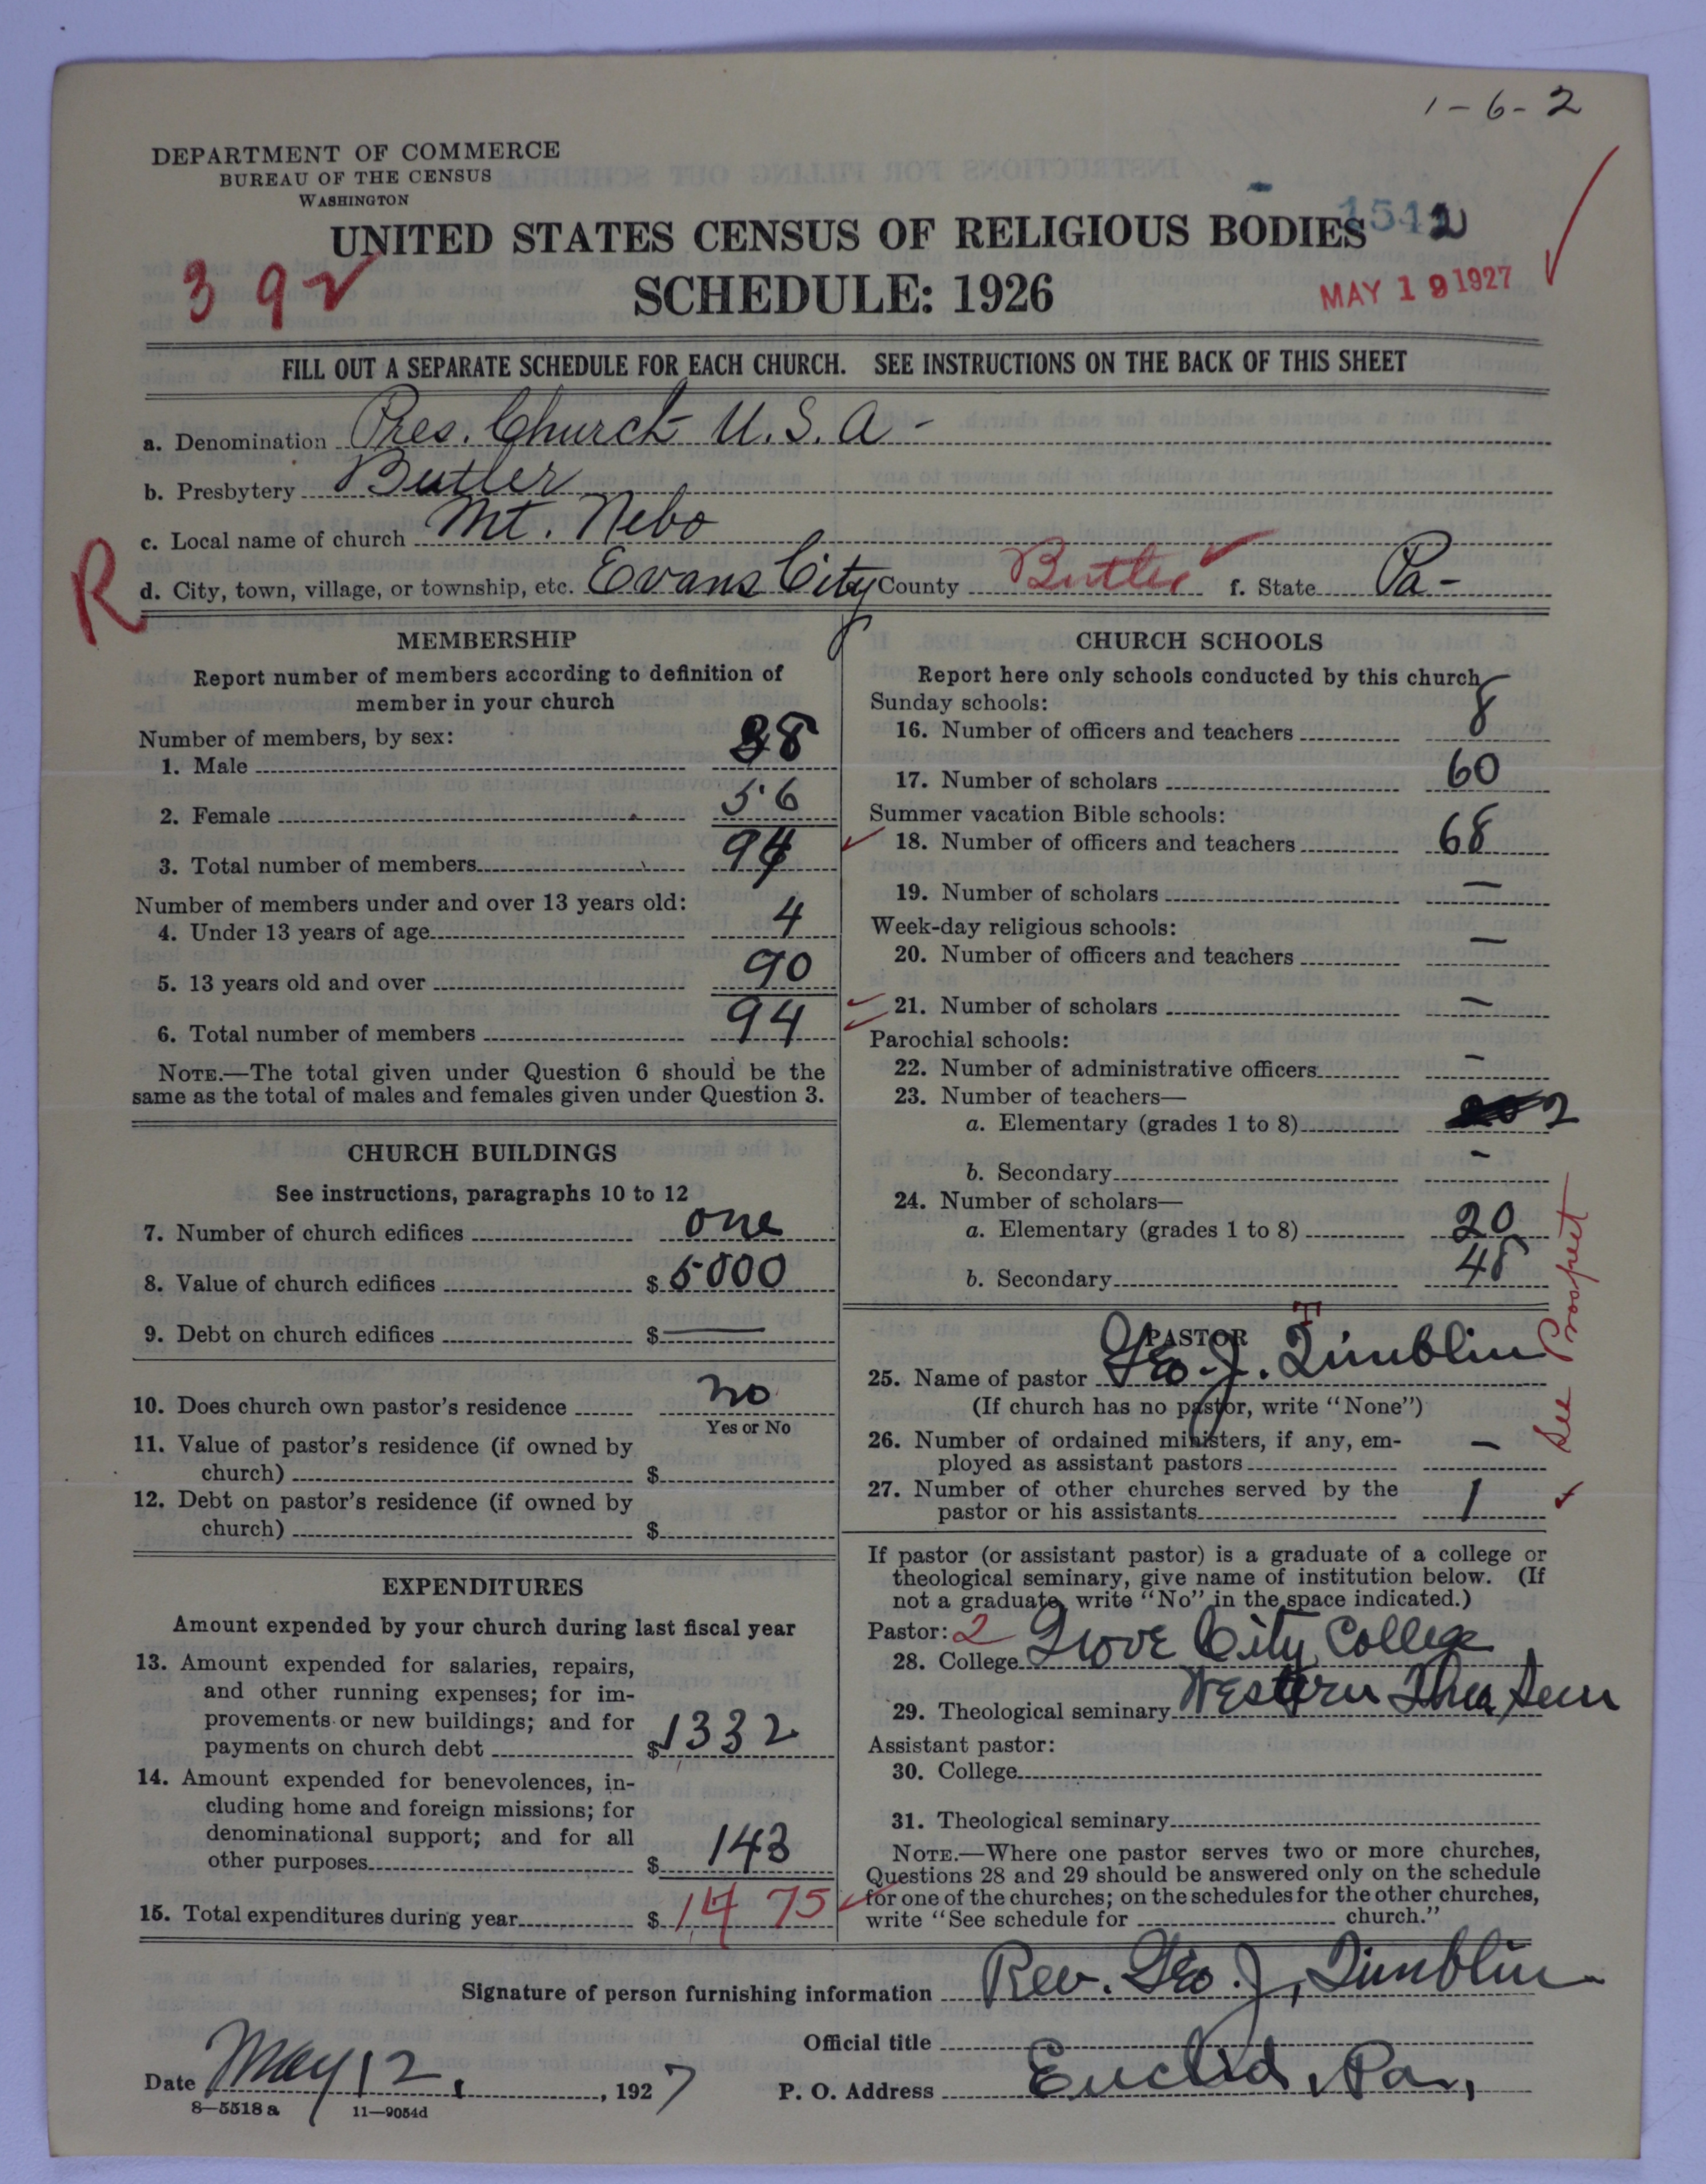 1-6-2
DEPARTMENT OF COMMERCE
BUREAU OF THE CENSUS
WASHINGTON
UNITED STATES CENSUS OF RELIGIOUS BODIES
SCHEDULE: 1926
392
MAY 19 1927
FILL OUT A SEPARATE SCHEDULE FOR EACH CHURCH. SEE INSTRUCTIONS ON THE BACK OF THIS SHEET
a. Denomination Pres. Church U.S.A-
b. Presbytery Butler
c. Local name of church Mt. Nebo
R
d. City, town, village, or township, etc. Evans City County Butler f. State Pa-
MEMBERSHIP
Report number of members according to definition of
member in your church
Number of members, by sex:
1. Male 38
2. Female 56
3. Total number of members 94
Number of members under and over 13 years old:
4. Under 13 years of age 4
5. 13 years old and over 90
6. Total number of members 94
NOTE.—The total given under Question 6 should be the
same as the total of males and females given under Question 3.
CHURCH BUILDINGS
See instructions, paragraphs 10 to 12
7. Number of church edifices one
8. Value of church edifices $ 5000
9. Debt on church edifices $ —
10. Does church own pastor's residence no
Yes or No
11. Value of pastor's residence (if owned by
church) $
12. Debt on pastor's residence (if owned by
church) $
EXPENDITURES
Amount expended by your church during last fiscal year
13. Amount expended for salaries, repairs,
and other running expenses; for im-
provements or new buildings; and for
payments on church debt $ 1332
14. Amount expended for benevolences, in-
cluding home and foreign missions; for
denominational support; and for all
other purposes $ 143
15. Total expenditures during year $ 1475
CHURCH SCHOOLS
Report here only schools conducted by this church
Sunday schools:
16. Number of officers and teachers 8
17. Number of scholars 60
Summer vacation Bible schools:
18. Number of officers and teachers 68
19. Number of scholars —
Week-day religious schools:
20. Number of officers and teachers —
21. Number of scholars —
Parochial schools:
22. Number of administrative officers -
23. Number of teachers—
a. Elementary (grades 1 to 8) 2
b. Secondary -
24. Number of scholars—
a. Elementary (grades 1 to 8) 20
b. Secondary 48
PASTOR
T
25. Name of pastor Geo. J. Timblin
(If church has no pastor, write "None")
26. Number of ordained ministers, if any, em-
ployed as assistant pastors —
27. Number of other churches served by the
pastor or his assistants 1
See Prospect
If pastor (or assistant pastor) is a graduate of a college or
theological seminary, give name of institution below. (If
not a graduate, write "No" in the space indicated.)
Pastor: 2
28. College Grove City College
29. Theological seminary Western Theo Sem
Assistant pastor:
30. College
31. Theological seminary
NOTE.—Where one pastor serves two or more churches,
Questions 28 and 29 should be answered only on the schedule
for one of the churches; on the schedules for the other churches,
write "See schedule for church."
Signature of person furnishing information Rev. Geo. J. Timblin
Official title
Date May 12, 1927
P. O. Address Euclid, Pa,
8—5518 a 11—9054d